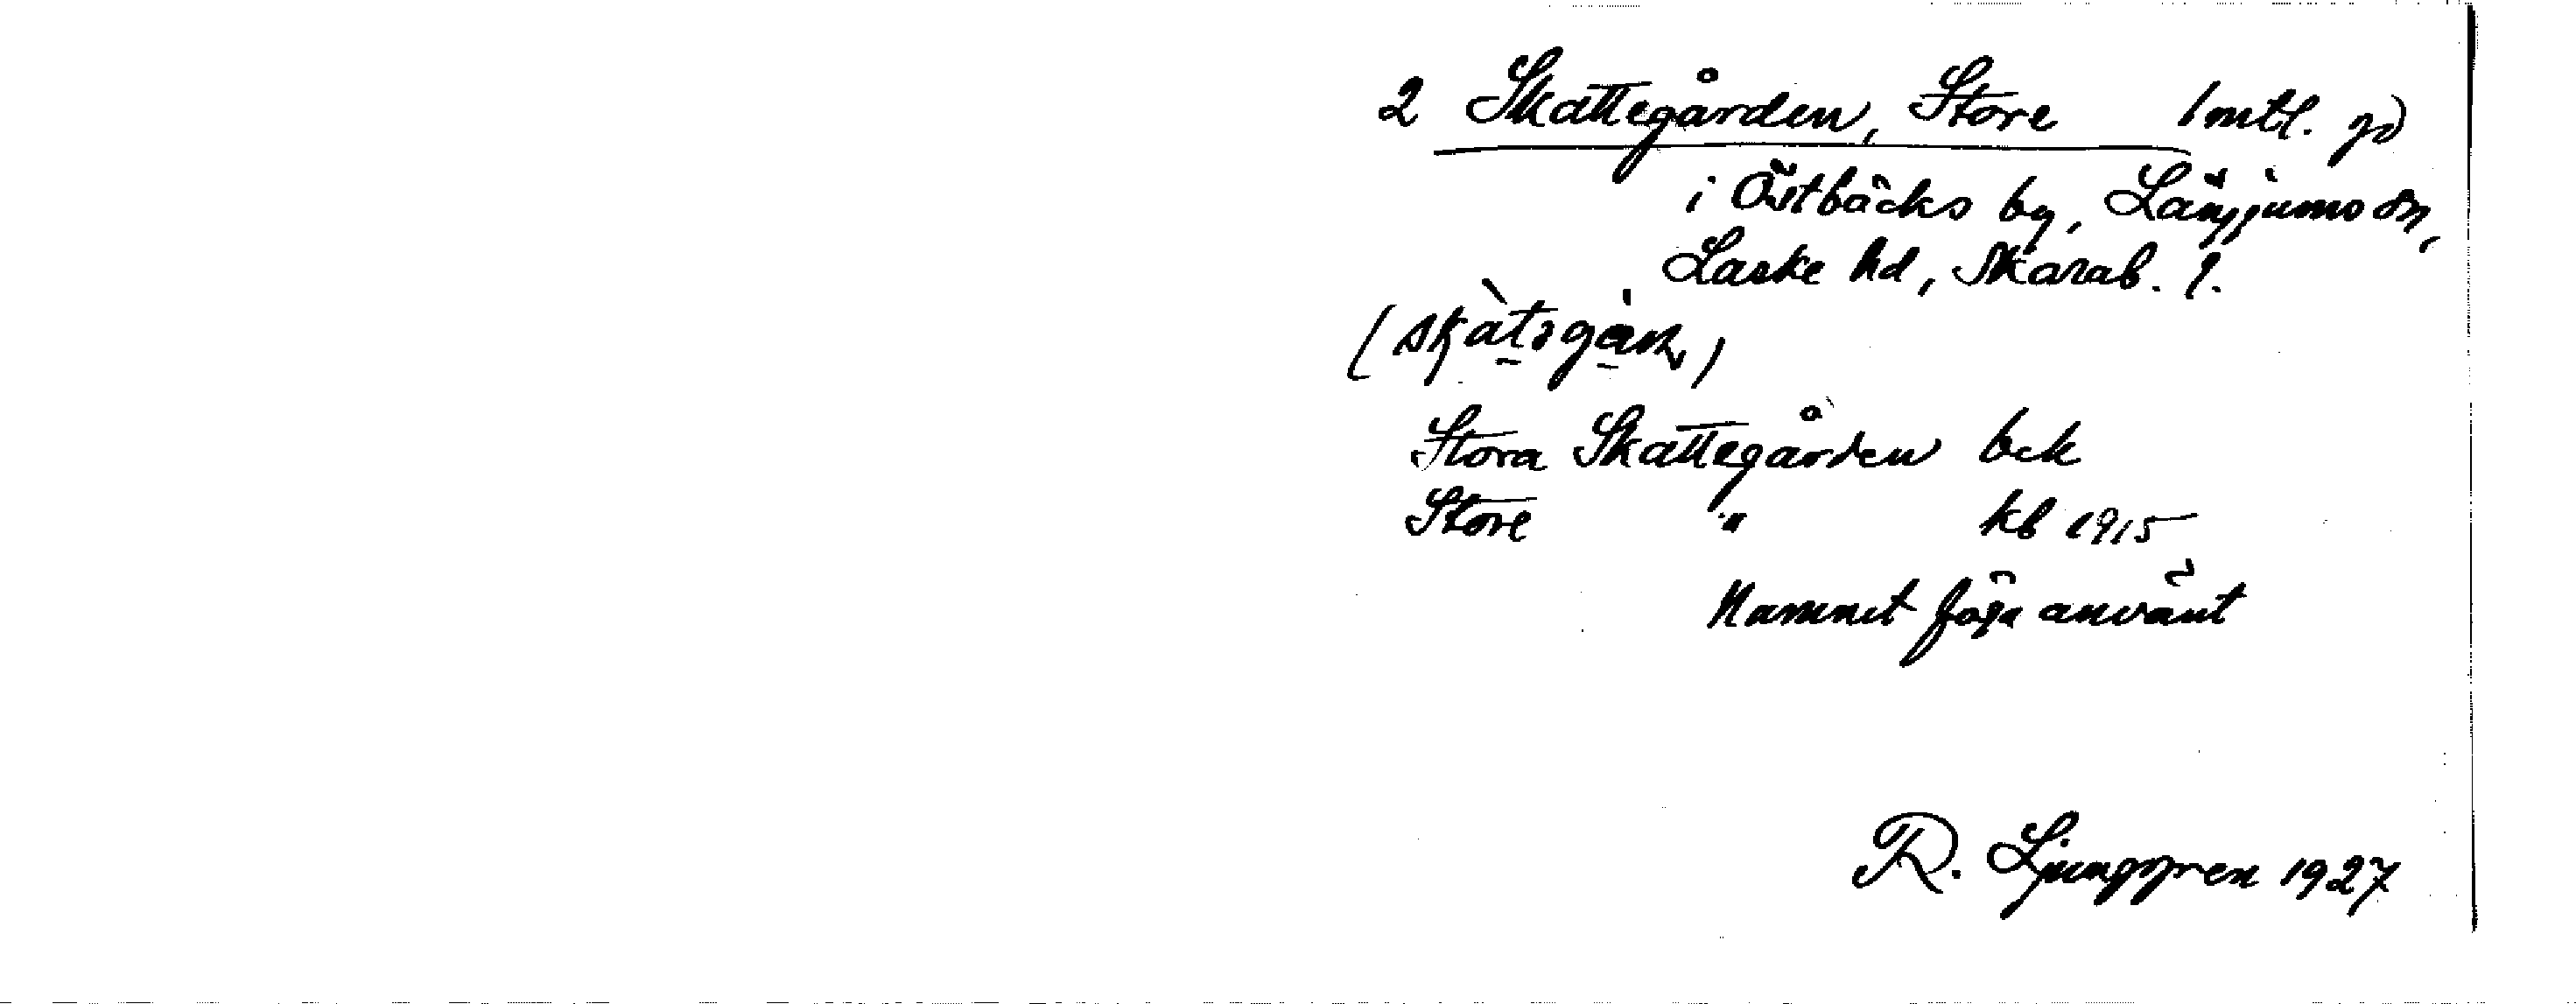 2 Skattegården, Store 1 mtl. gd
i Östbäcks by, Längjums sn,
Laske hd, Skarab. l.
Stora Skattegården bek
Store " kb 1915
Namnet föga använt
R. Ljunggren 1927